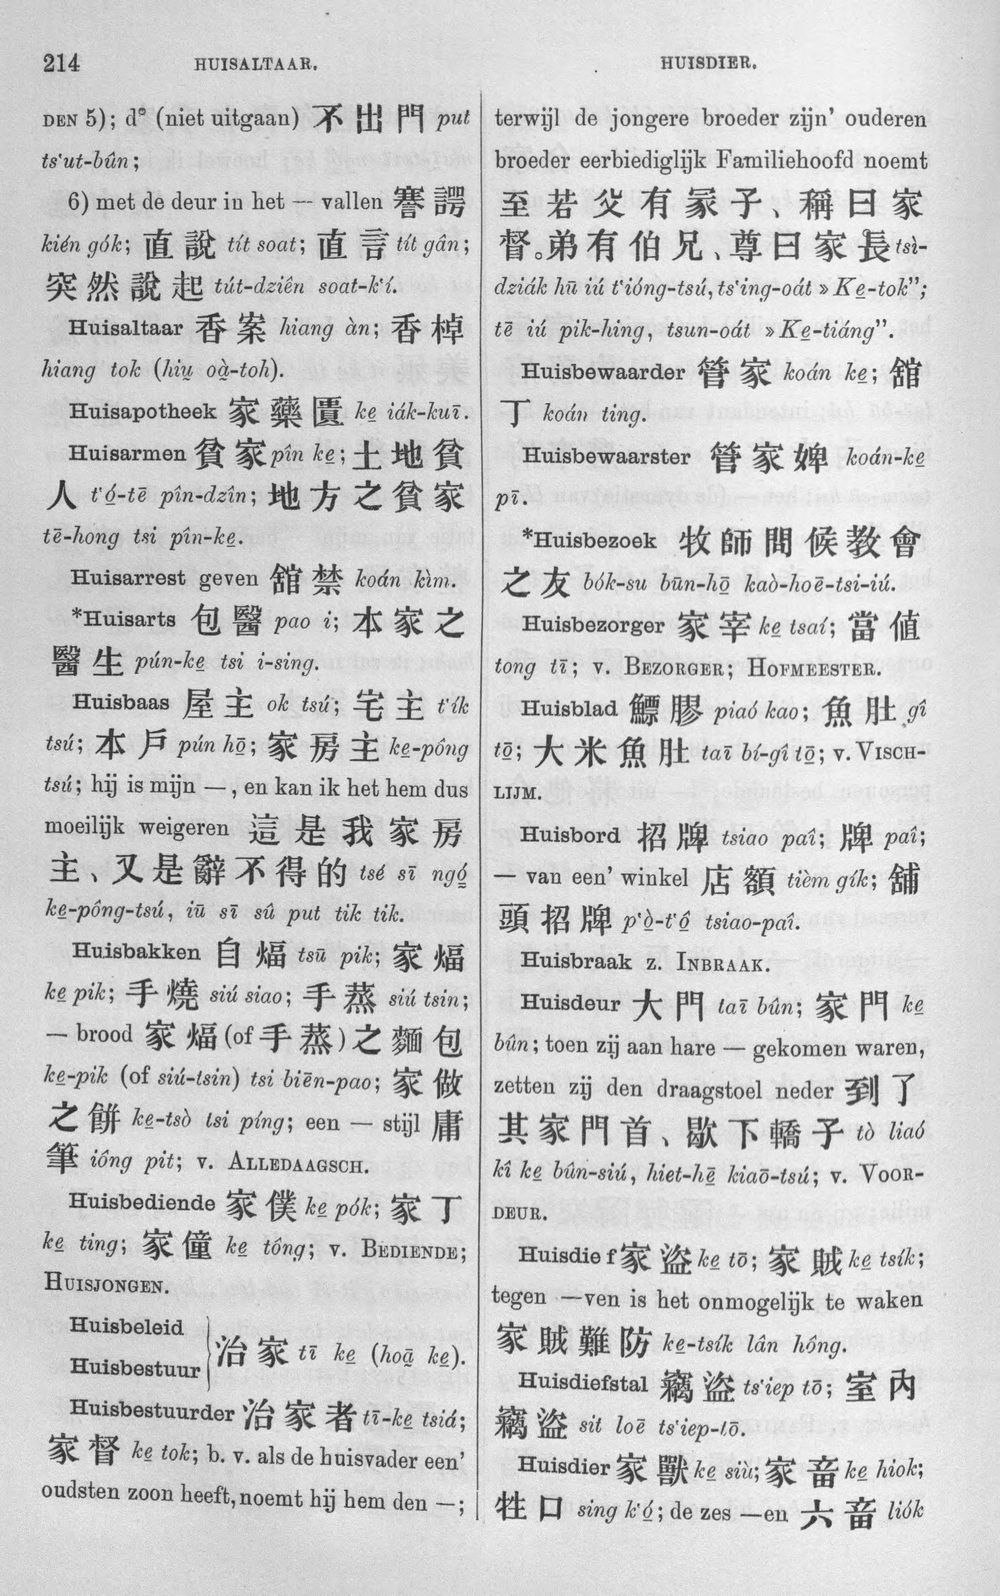 214
HUISALTAAR.
HUISDIER.
DEN 5); d° (niet uitgaan) 不出門 put
tsʽut-bûn;
6) met de deur in het — vallen 謇諤
kién gók; 直說 tít soat; 直言 tít gân;
突然說起 tút-dziên soat-kʽí.
Huisaltaar 香案 hiang àn; 香棹
hiang tok (hiu̠ oà̠-toh).
Huisapotheek 家藥匱 ke̠ iák-kuī.
Huisarmen 貧家 pîn ke̠; 土地貧
人 tʽó̠-tē pîn-dzîn; 地方之貧家
tē-hong tsi pîn-ke̠.
Huisarrest geven 舘禁 koán kìm.
*Huisarts 包醫 pao i; 本家之
醫生 pún-ke̠ tsi i-sing.
Huisbaas 屋主 ok tsú; 宅主 tʽík
tsú; 本戶 pún hō̠; 家房主 ke̠-pông
tsú; hij is mijn —, en kan ik het hem dus
moeilijk weigeren 這是我家房
主、又是辭不得的 tsé sī ngó̠
ke̠-pông-tsú, iū sī sû put tik tik.
Huisbakken 自煏 tsū pik; 家煏
ke̠ pik; 手燒 siú siao; 手蒸 siú tsin;
— brood 家煏 (of 手蒸) 之麵包
ke̠-pik (of siú-tsin) tsi biēn-pao; 家做
之餅 ke̠-tsò tsi píng; een — stijl 庸
筆 iông pit; v. ALLEDAAGSCH.
Huisbediende 家僕 ke̠ pók; 家丁
ke̠ ting; 家僮 ke̠ tông; v. BEDIENDE;
HUISJONGEN.
Huisbeleid
Huisbestuur
治家 tī ke̠ (hoā̠ ke̠).
Huisbestuurder 治家者 tī-ke̠ tsiá;
家督 ke̠ tok; b. v. als de huisvader een’
oudsten zoon heeft, noemt hij hem den —;
terwijl de jongere broeder zijn’ ouderen
broeder eerbiediglijk Familiehoofd noemt
至若父有冡子、稱曰家
督。弟有伯兄、尊曰家長 tsì-
dziák hū iú tʽióng-tsú, tsʽing-oát »Ke̠-tok”;
tē iú pik-hing, tsun-oát »Ke̠-tiáng”.
Huisbewaarder 管家 koán ke̠; 舘
丁 koán ting.
Huisbewaarster 管家婢 koán-ke̠
pī.
*Huisbezoek 牧師問候教會
之友 bók-su būn-hō̠ kaò-hoē-tsi-iú.
Huisbezorger 家宰 ke̠ tsaí; 當値
tong tī; v. BEZORGER; HOFMEESTER.
Huisblad 鰾膠 piaó kao; 魚肚 gî
tō̠; 大米魚肚 taī bí-gî tō̠; v. VISCH-
LIJM.
Huisbord 招牌 tsiao paî; 牌 paî;
— van een’ winkel 店額 tièm gík; 舖
頭招牌 pʽò̠-tʽô̠ tsiao-paî.
Huisbraak z. INBRAAK.
Huisdeur 大門 taī bûn; 家門 ke̠
bûn; toen zij aan hare — gekomen waren,
zetten zij den draagstoel neder 到了
其家門首、歇下轎子 tò liaó
kî ke̠ bûn-siú, hiet-hē̠ kiaō-tsú; v. VOOR-
DEUR.
Huisdief 家盜 ke̠ tō; 家賊 ke̠ tsík;
tegen —ven is het onmogelijk te waken
家賊難防 ke̠-tsík lân hông.
Huisdiefstal 竊盜 tsʽiep tō; 室內
竊盜 sit loē tsʽiep-tō.
Huisdier 家獸 ke̠ siù; 家畜 ke̠ hiok;
牲口 sing kʽó̠; de zes —en 六畜 liók